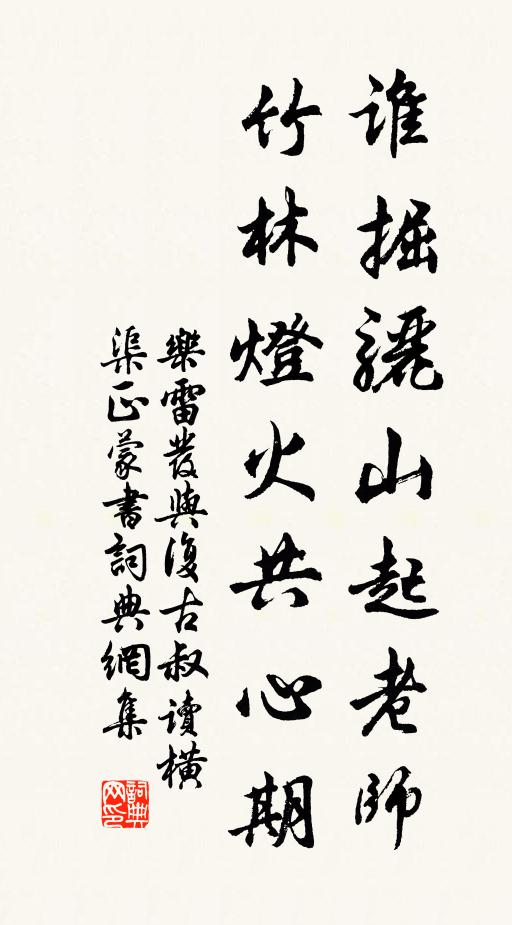 谁掘驪山起老师
竹林燈火共心期
樂雷發與復古叔讀橫
渠正蒙書詞典網集
詞典網印